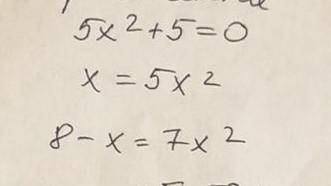 5x²+5=0
x=5x²
8-x=7x²